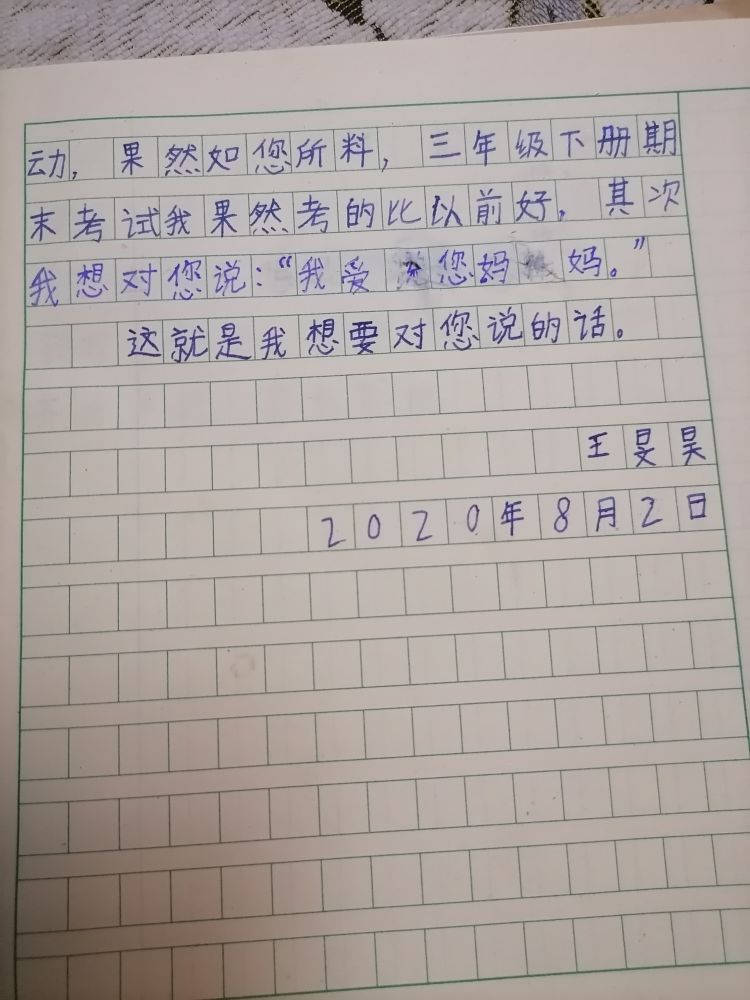 动，果然如您所料，三年级下册期
末考试我果然考的比以前好，其次
我想对您说：“我爱您妈妈。”
这就是我想要对您说的话。
王旻昊
2020年8月2日